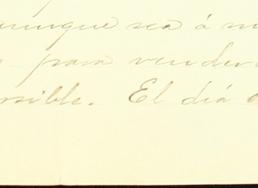 aunque sea á m
para vender
sible. El diá